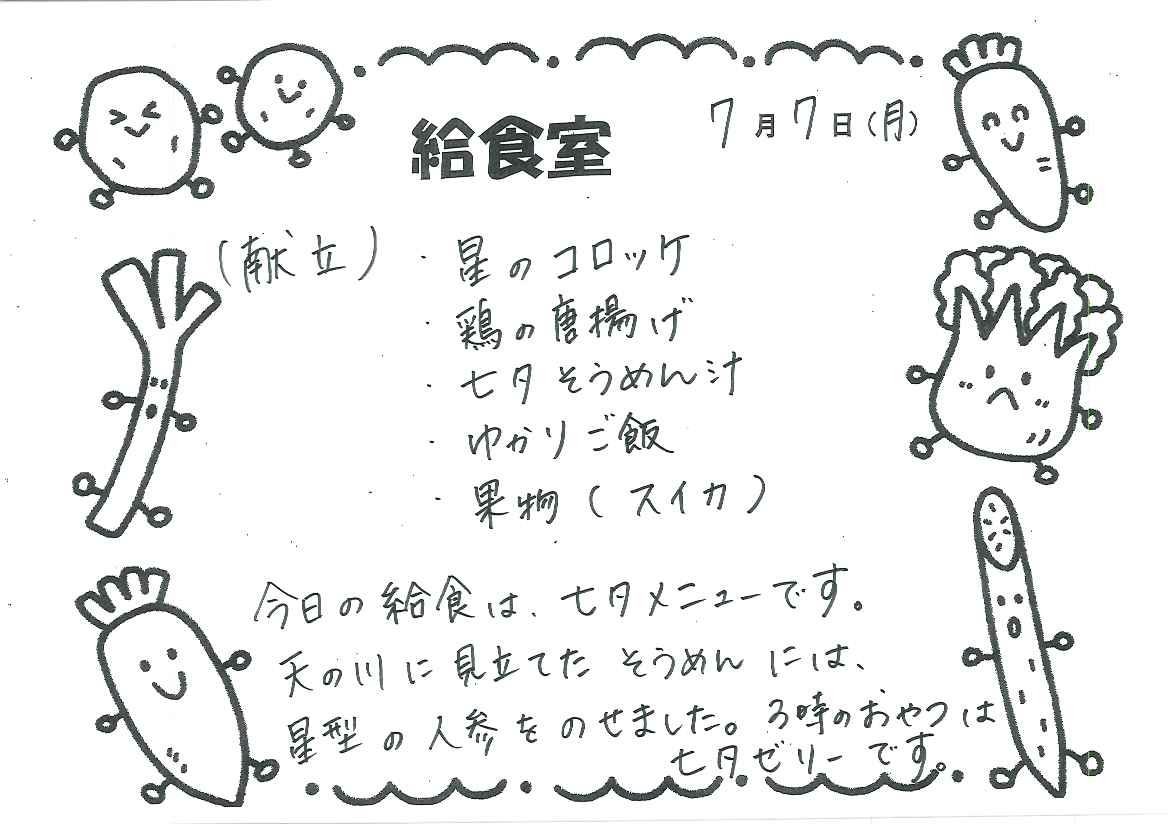 給食室
7月7日(月)
(献立)・星のコロッケ
・鶏の唐揚げ
・七夕そうめん汁
・ゆかりご飯
・果物(スイカ)
今日の給食は、七夕メニューです。
天の川に見立てたそうめんには、
星型の人参をのせました。3時のおやつは
七夕ゼリーです。